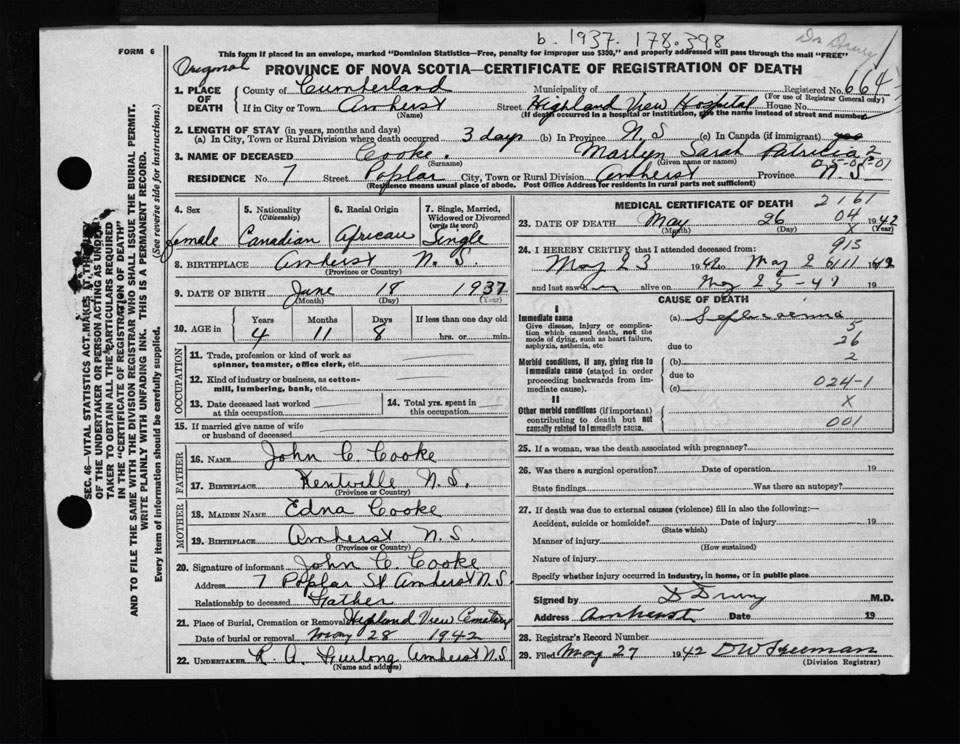 b. 1937. 178.398
Dr Drury
FORM 6
This form if placed in an envelope, marked "Dominion Statistics—Free, penalty for improper use $300," and properly addressed will pass through the mail "FREE"
Original
PROVINCE OF NOVA SCOTIA—CERTIFICATE OF REGISTRATION OF DEATH
1. PLACE OF DEATH County of Cumberland Municipality of Registered No. 664
(For use of Registrar General only)
If in City or Town Amherst Street Highland View Hospital House No.
(Name) (If death occurred in a hospital or institution, give the name instead of street and number)
2. LENGTH OF STAY (in years, months and days)
(a) In City, Town or Rural Division where death occurred 3 days (b) In Province N.S (c) In Canada (if immigrant)
3. NAME OF DECEASED Cooke. Marlyn Sarah Patricia 2
(Surname) (Given name or names)
RESIDENCE No. 7 Street Poplar City, Town or Rural Division Amherst Province N.S.
(Residence means usual place of abode. Post Office Address for residents in rural parts not sufficient)
SEC. 46—VITAL STATISTICS ACT MAKES IT THE DUTY
OF THE UNDERTAKER OR PERSON ACTING AS UNDER-
TAKER TO OBTAIN ALL THE PARTICULARS REQUIRED
IN THE "CERTIFICATE OF REGISTRATION OF DEATH"
AND TO FILE THE SAME WITH THE DIVISION REGISTRAR WHO SHALL ISSUE THE BURIAL PERMIT.
WRITE PLAINLY WITH UNFADING INK. THIS IS A PERMANENT RECORD.
Every item of information should be carefully supplied. (See reverse side for instructions.)
4. Sex 5. Nationality (Citizenship) 6. Racial Origin 7. Single, Married, Widowed or Divorced (write the word)
Female Canadian African Single
8. BIRTHPLACE Amherst N.S.
(Province or Country)
9. DATE OF BIRTH June 18 1937
(Month) (Day) (Year)
10. AGE in Years Months Days If less than one day old
4 11 8 hrs. or min.
OCCUPATION
11. Trade, profession or kind of work as spinner, teamster, office clerk, etc.
12. Kind of industry or business, as cotton-mill, lumbering, bank, etc.
13. Date deceased last worked at this occupation 14. Total yrs. spent in this occupation
15. If married give name of wife or husband of deceased
FATHER
16. NAME John C. Cooke
17. BIRTHPLACE Kentville N.S.
(Province or Country)
MOTHER
18. MAIDEN NAME Edna Cooke
19. BIRTHPLACE Amherst N.S.
(Province or Country)
20. Signature of informant John C. Cooke
Address 7 Poplar St Amherst N.S.
Relationship to deceased Father
21. Place of Burial, Cremation or Removal Highland View Cemetery
Date of burial or removal May 28 1942
22. UNDERTAKER R. A. Furlong Amherst N.S
(Name and address)
MEDICAL CERTIFICATE OF DEATH 2161
23. DATE OF DEATH May 26 04 1942
(Month) (Day) X (Year)
915
24. I HEREBY CERTIFY that I attended deceased from:
May 23 1942 to May 26 111 1942
and last saw alive on May 25-42 19
CAUSE OF DEATH
I
Immediate cause (a) Septicaemia
Give disease, injury or complication which caused death, not the mode of dying, such as heart failure, asphyxia, asthenia, etc.
5
due to 26
Morbid conditions, if any, giving rise to immediate cause (stated in order proceeding backwards from immediate cause). (b) 2
due to
(c) 024-1
II
X
Other morbid conditions (if important) contributing to death but not causally related to immediate cause. 001
25. If a woman, was the death associated with pregnancy?
26. Was there a surgical operation? Date of operation 19
State findings Was there an autopsy?
27. If death was due to external causes (violence) fill in also the following:—
Accident, suicide or homicide? Date of injury 19
(State which)
Manner of injury
(How sustained)
Nature of injury
Specify whether injury occurred in industry, in home, or in public place
Signed by D Drury M.D.
Address Amherst Date 19
28. Registrar's Record Number
29. Filed May 27 1942 D W Freeman
(Division Registrar)